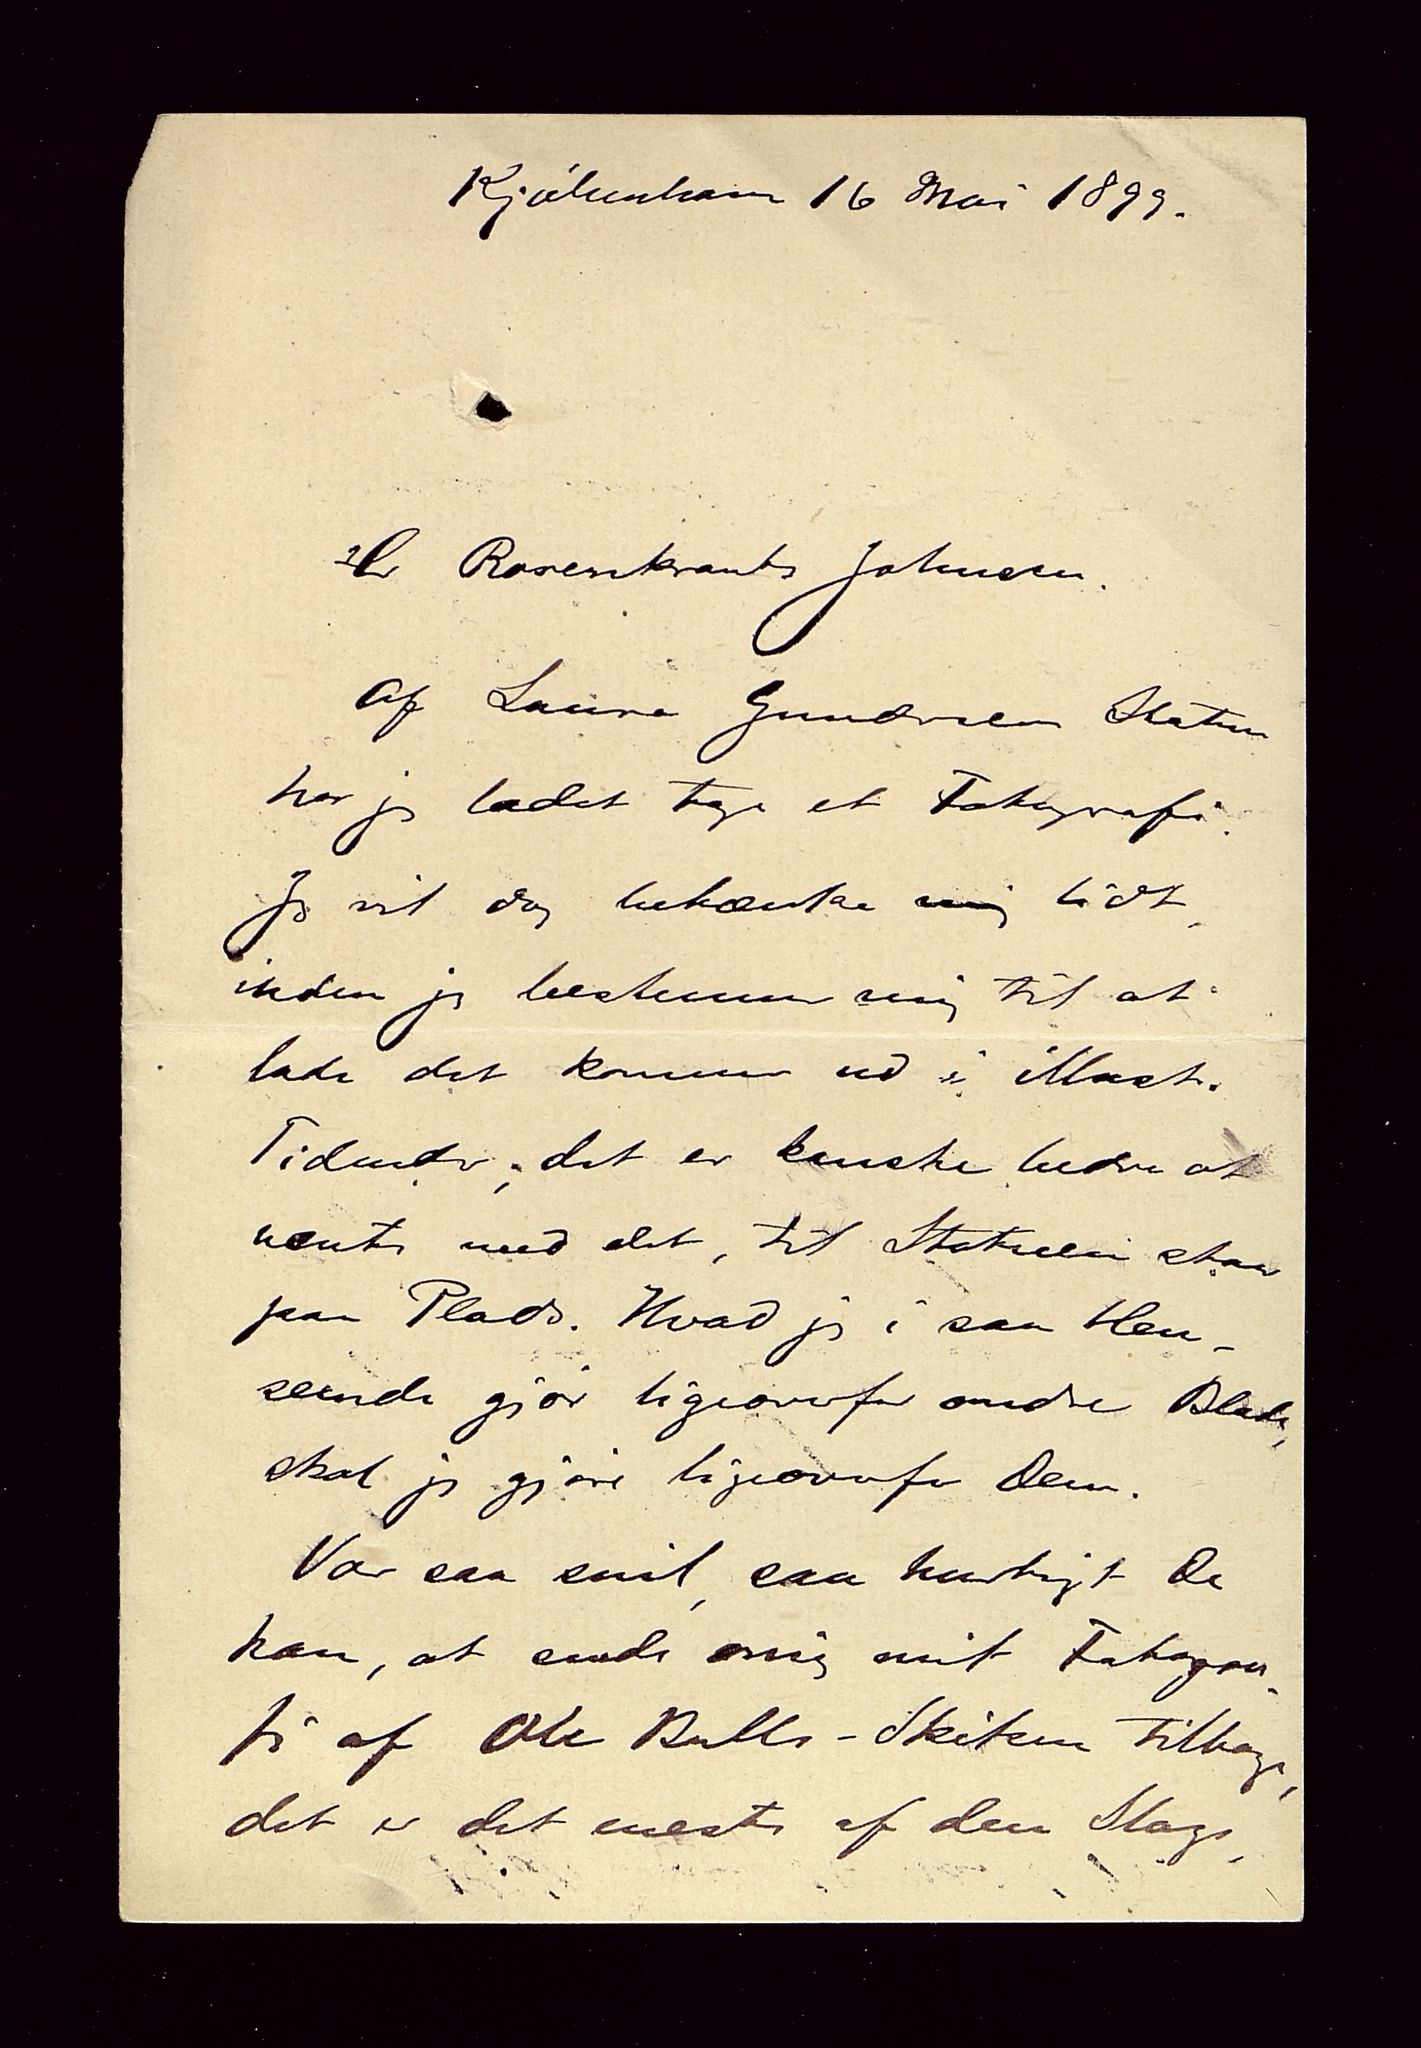 Kjöbenhavn 16 Mai 1899.
Hr Rosenkrantz Johnsen.
Af Laura Gundersen Statuen
har jg ladet tage et Fotografi.
Jg vil dog betænke mig lidt,
inden jg bestemmer mig til at
lade det komme ud i illust.
Tidende; det er kanske bedre at
vente med det, til Statuen staar
paa Plads. Hvad jg i saa Hen-
seende gjör ligeoverfor andre Blade,
skal jg gjöre ligeoverfor Dem.
Vær saa snil, saa hurtigt De
kan, at sende mig mit Fotogra-
fi af Ole Bulls-Skitsen tilbage,
det er det eneste af den Slags,